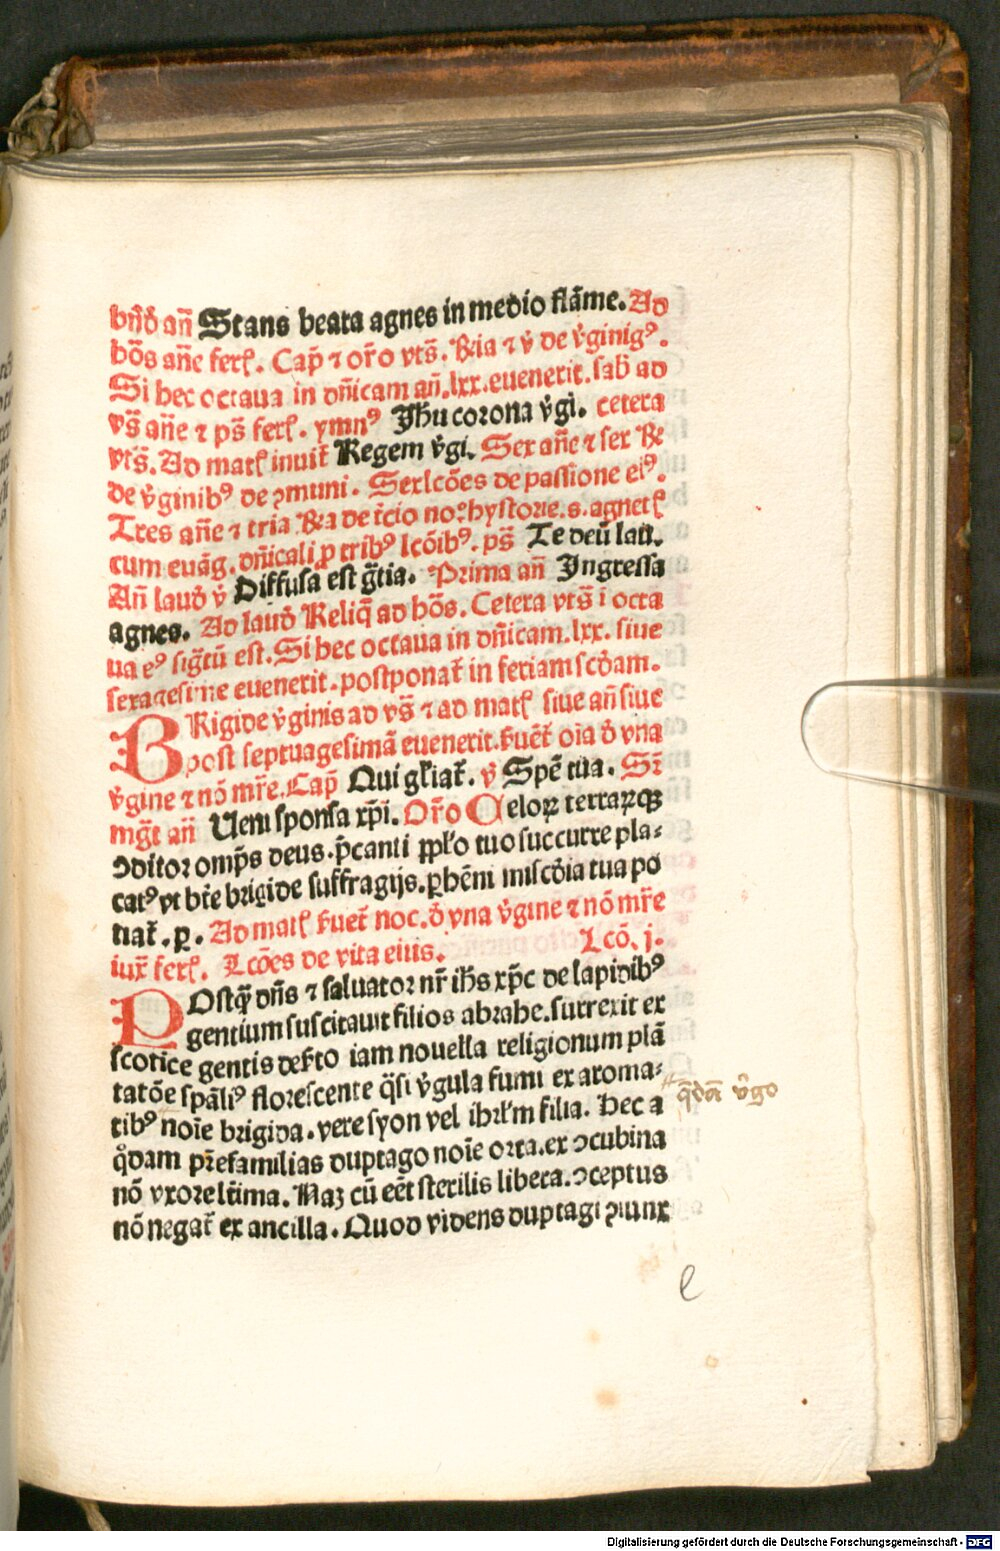 bn̄d̄ an̄ Stans beata agnes in medio flām̄e. Ad
hōs an̄e ferꝭ. Cap̄ ⁊ or̄o vts̄. R̄ia ⁊ v̄ de v̄ginigꝰ.
Si hec octaua in dn̄icam an̄. lxx. euenerit. sab̄ ad
vs̄ an̄e ⁊ ps̄ ferꝭ. ymnꝰ Jh̄u corona v̄gī. cetera
vts̄. Ad matꝭ inuit̄ Regem v̄gī. Sex an̄e ⁊ sex R̄
de v̄ginibꝰ de ꝯmuni. Sex lcōes de passione eiꝰ.
Tres an̄e ⁊ tria R̄a de t̄cio noꝉ hystorie. s. agnetꝭ
cum euāg. dn̄icali ꝓ tribꝰ lcōibꝰ. ps̄ Te deū lau.
An̄ laud̄ v̄ Diffusa est gr̄tia. Prima an̄ Ingressa
agnes. Ad laud̄ Reliq̄ ad hōs. Cetera vts̄ i octa
ua eꝰ sigr̄tū est. Si hec octaua in dn̄icam. lxx. siue
sexagesime euenerit. postponat̄ in feriam scd̄am.
BRigide v̄ginis ad vs̄ ⁊ ad matꝭ siue an̄ siue
post septuagesimā euenerit. fuēt̄ oīa d̄ vna
v̄gine ⁊ nō mr̄e. Cap̄ Qui gl̄iat̄. v̄ Spē tua. Sr̄
mgr̄t an̄ Ueni sponsa xp̄i. Or̄o Celoꝝ terraꝝqꝫ
ꝯditor omp̄s deus. p̄canti ppl̄o tuo succurre pla⸗
catꝰ vt btē brigide suffragijs. ꝑhēni mi̅scd̄ia tua po
tiat̄. ꝑ. Ad matꝭ fuet̄ noc. d̄ vna v̄gine ⁊ nō mr̄e
iux̄ ferꝭ. Lcōes de vita eius. Lcō. j.
POstq̄ dn̄s ⁊ saluator nr̄ ih̄s xp̄c de lapidibꝰ
gentium suscitauit filios abrahe. surrexit ex
scotice gentis defc̄to iam nouella religionum plā
tatōe spāliꝰ florescente q̄si v̄gula fumi ex aroma⸗
tibꝰ noīe brigida. vere syon vel ihrl̄m filia. Hec a
q̊dam pr̄efamilias duptago noīe orta. ex ꝯcubina
nō vxore lt̄ima. Naꝫ cū eēt sterilis libera. ꝯceptus
nō negat̄ ex ancilla. Quod videns duptagi ꝯiunx
q̄dā v̄go
e
Digitalisierung gefördert durch die Deutsche Forschungsgemeinschaft - DFG